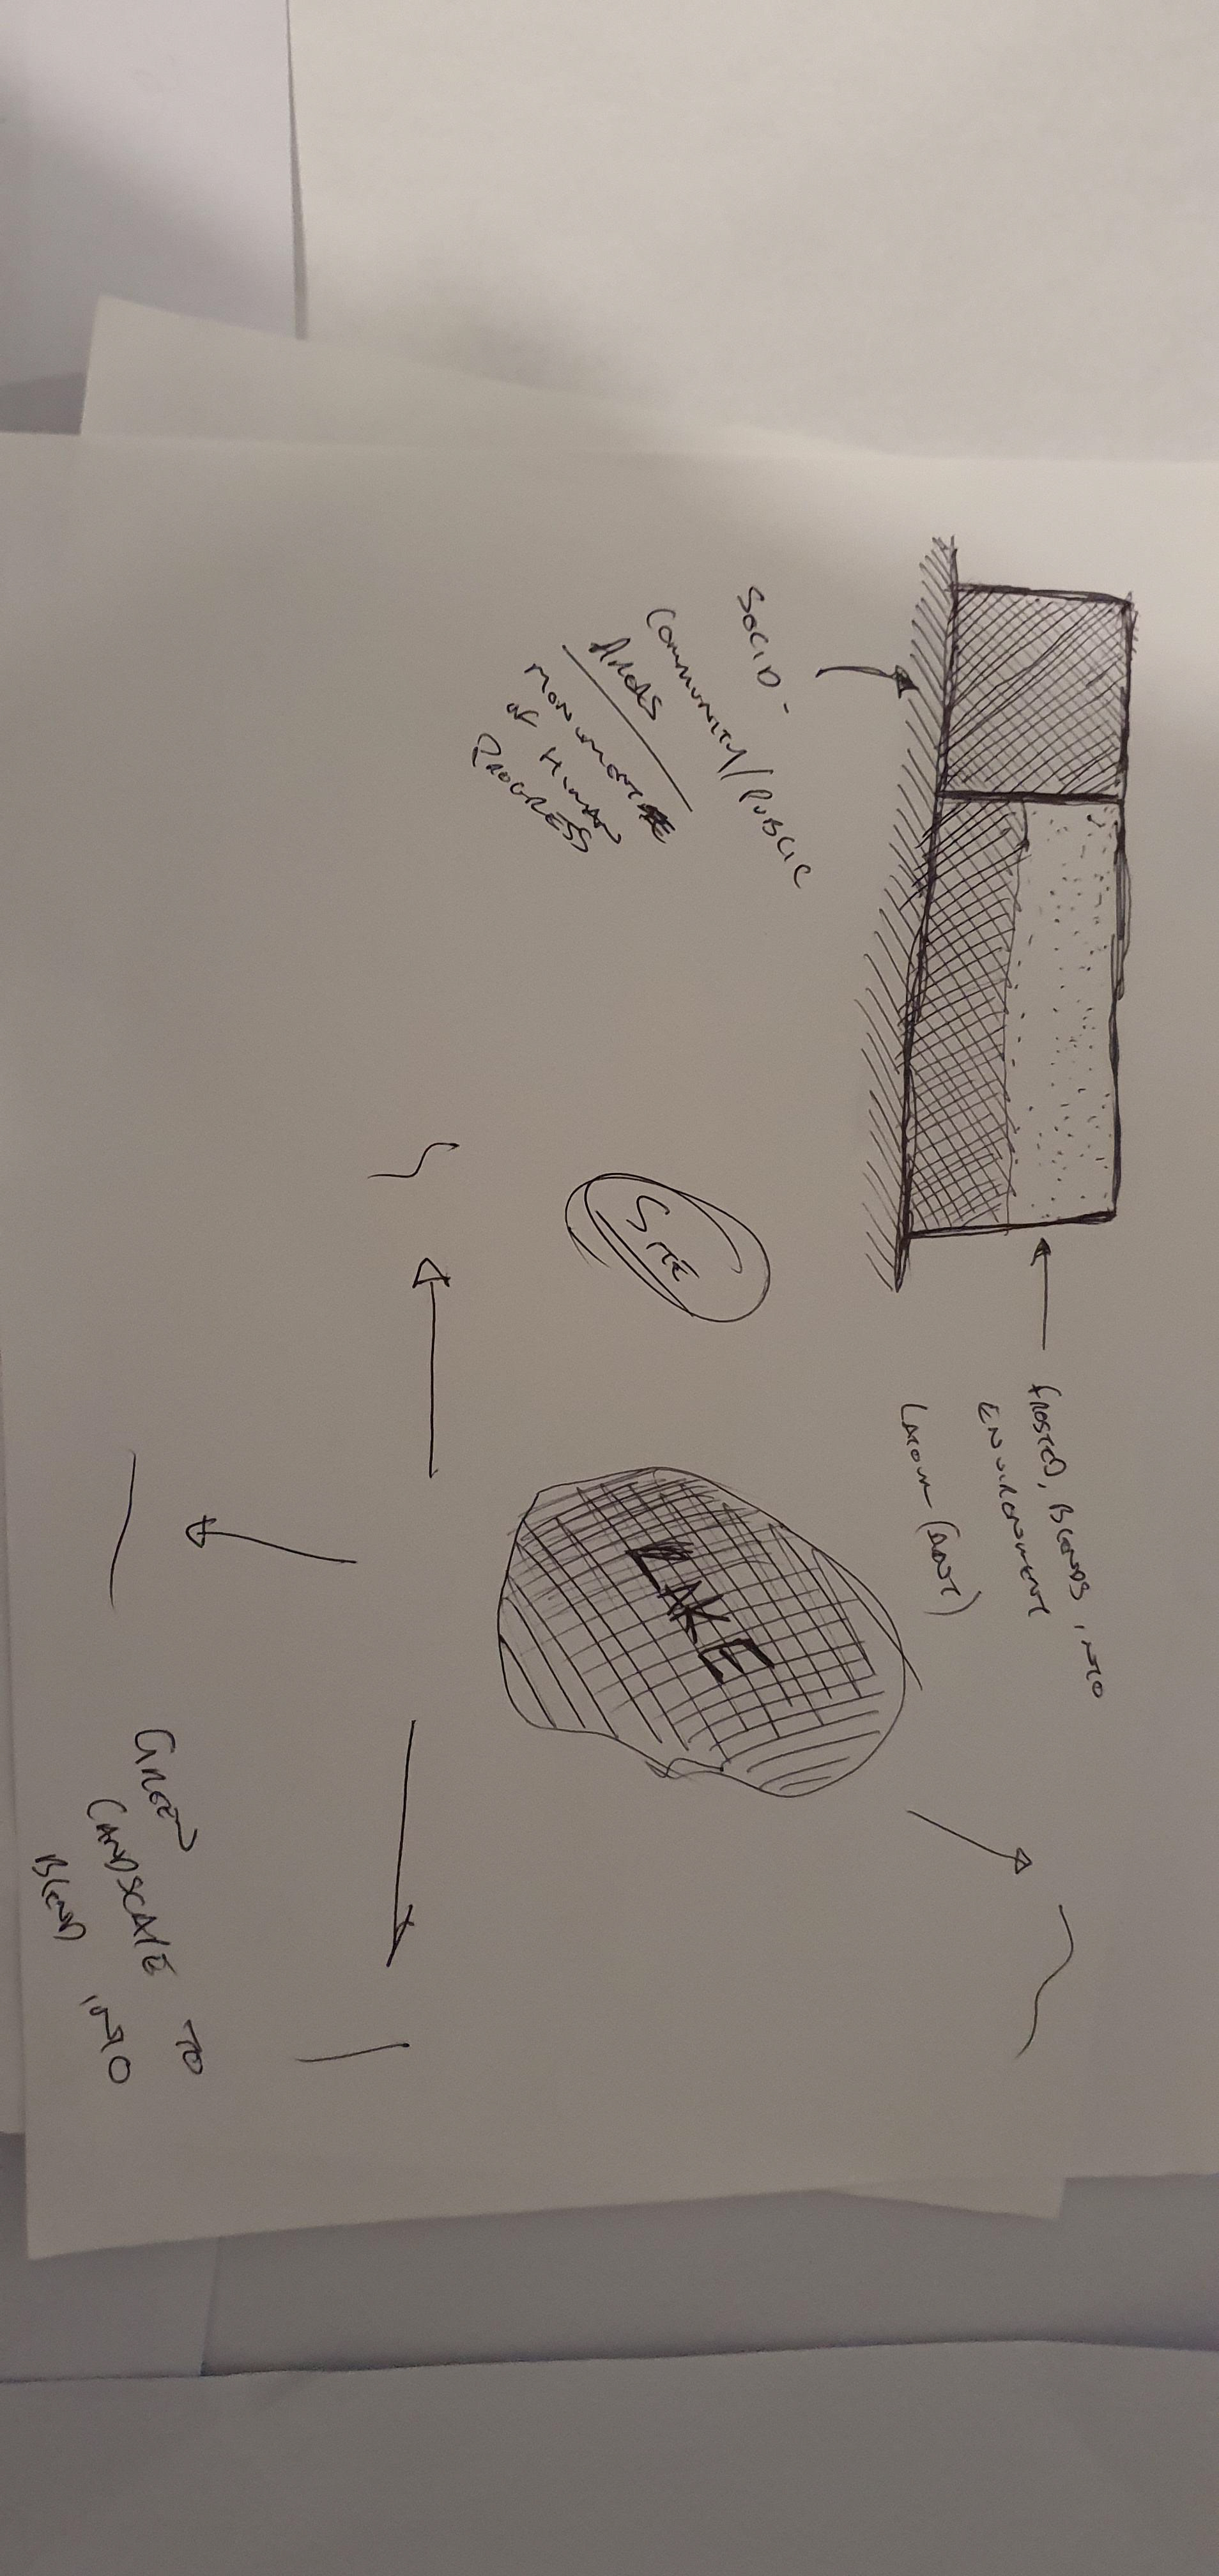 SOLID -
COMMUNITY/PUBLIC
AREAS
OF HUMAN
PROGRESS
FROSTED, BLENDS INTO
ENVIRONMENT
SITE
LAKE
GREEN
LANDSCAPE TO
BLEND INTO